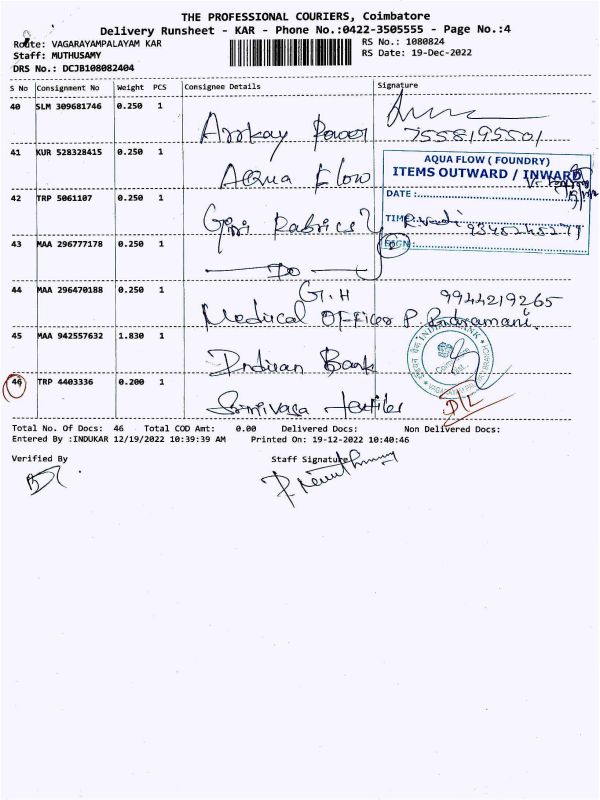 THE PROFESSIONAL COURIERS, Coimbatore
Delivery Runsheet - KAR - Phone No.:0422-3505555 - Page No.:4
Route: VAGARAYAMPALAYAM KAR
RS No.: 1080824
Staff: MUTHUSAMY
RS Date: 19-Dec-2022
DRS No.: DCJB108082404
S No Consignment No Weight PCS Consignee Details Signature
40 SLM 309681746 0.250 1
Arrkay Power
7558195501
41 KUR 528328415 0.250 1
Aqua Flow
AQUA FLOW ( FOUNDRY)
ITEMS OUTWARD / INWARD
DATE :
TIME :
SIGN :
42 TRP 5061107 0.250 1
Giri Fabrics
9345245277
43 MAA 296777178 0.250 1
Do
44 MAA 296470188 0.250 1
G.H
9944219265
Medical Officer P.
45 MAA 942557632 1.830 1
Indian Bank
INDIAN BANK
46 TRP 4403336 0.200 1
Srinivasa Textiles
D/L
Total No. Of Docs: 46 Total COD Amt: 0.00 Delivered Docs: Non Delivered Docs:
Entered By :INDUKAR 12/19/2022 10:39:39 AM Printed On: 19-12-2022 10:40:46
Verified By Staff Signature